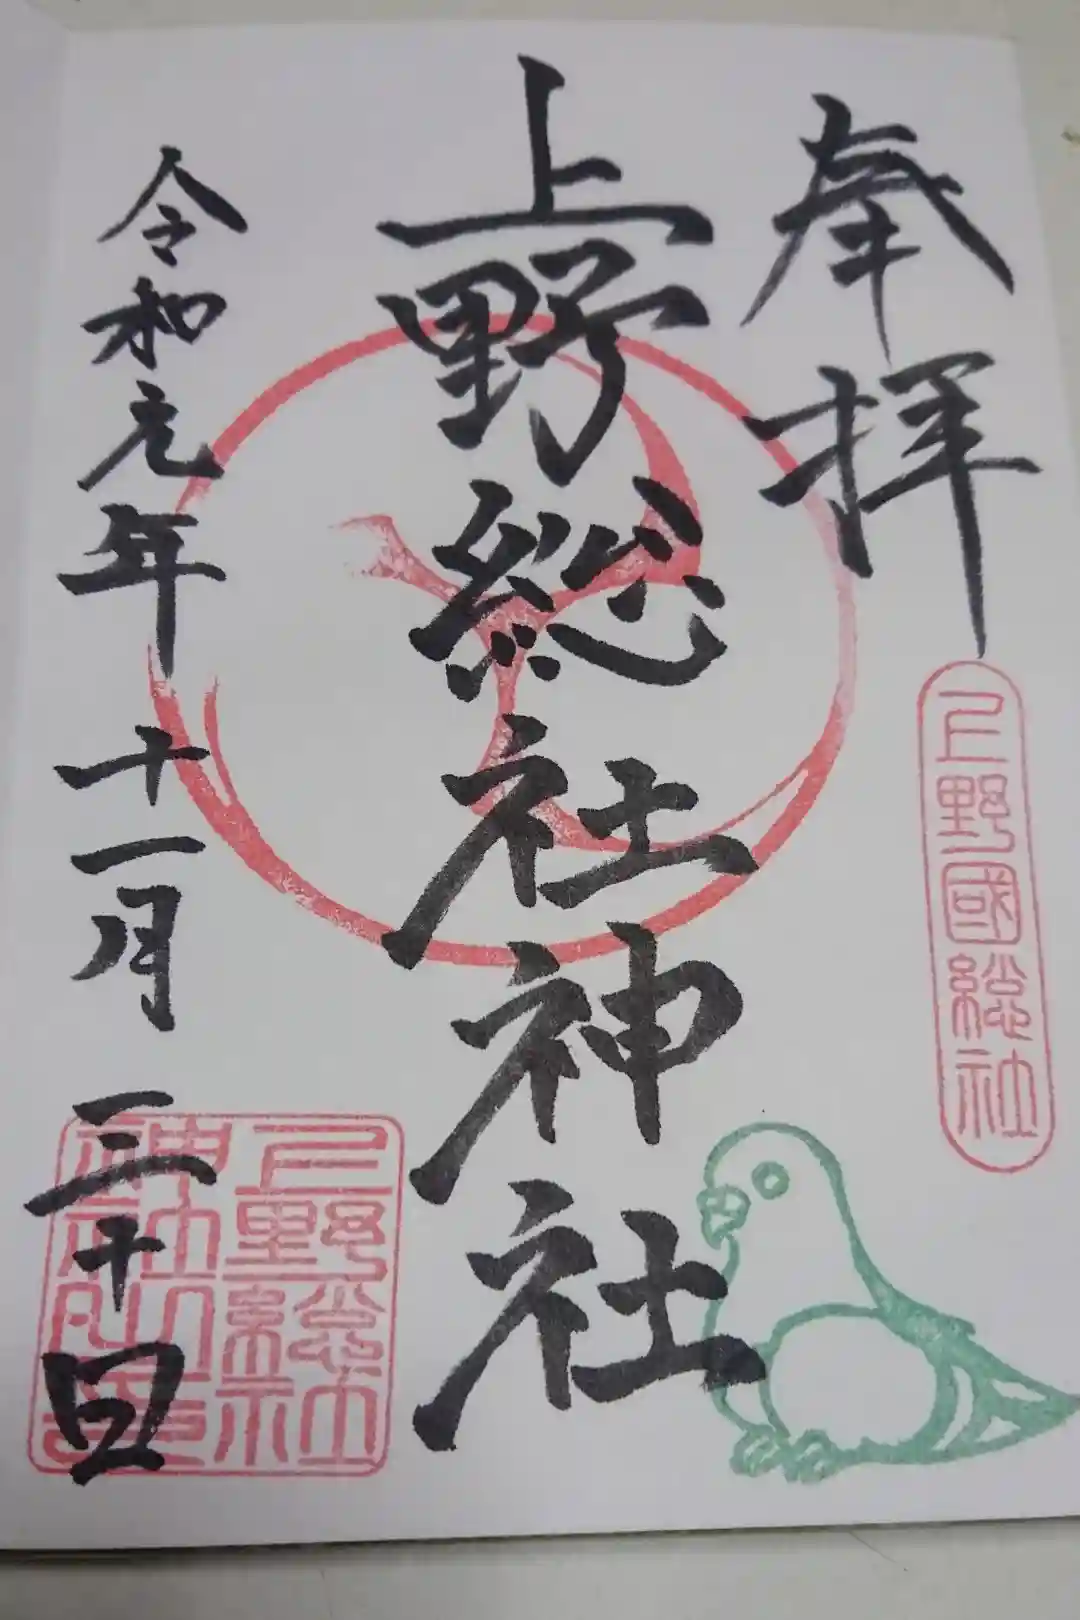 奉拝
上野國総社
上野総社神社
令和元年十一月三十日
上野総社
神社之印